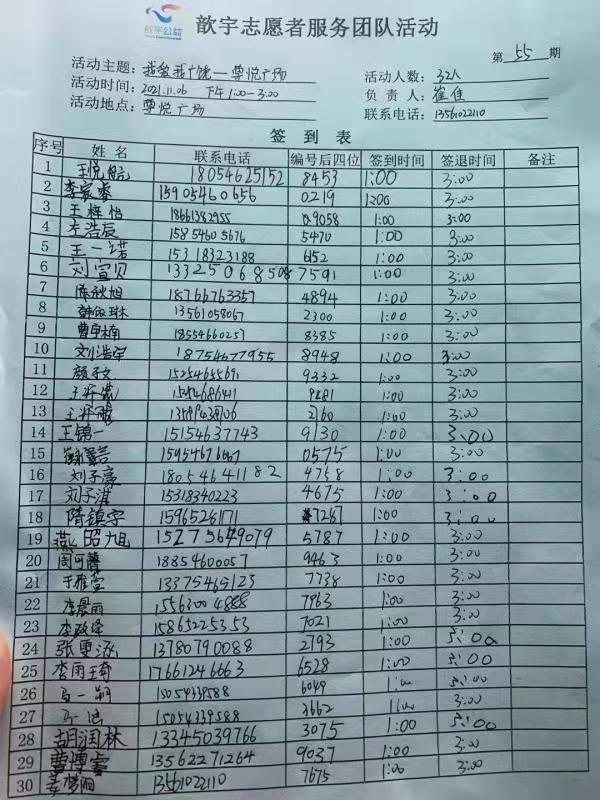 歆宇公益
歆宇志愿者服务团队活动
第 55 期
活动主题: 我爸我广饶—尊悦广场 活动人数: 32人
活动时间: 2021.11.06 下午1:00-3:00 负责人: 崔佳
活动地点: 尊悦广场 联系电话: 13561022110
签到表
序号 姓名 联系电话 编号后四位 签到时间 签退时间 备注
1 王悦航 18054625152 8453 1:00 3:00
2 李家睿 15905460656 0219 1:00 3:00
3 王辉怡 18661382955 9058 1:00 3:00
4 李浩辰 15854605676 5470 1:00 3:00
5 王一诺 15318323188 6152 1:00 3:00
6 刘宣贝 13325068508 7591 1:00 3:00
7 陈秋旭 18766763357 4894 1:00 3:00
8 韩依琳 13561058067 2300 1:00 3:00
9 曹卓楠 18554660257 8385 1:00 3:00
10 刘浩宇 18754677955 8948 1:00 3:00
11 颜子文 15254655691 9332 1:00 3:00
12 15254686411 9281 1:00 3:00
13 2160 1:00 3:00
14 王锦一 15154637743 9130 1:00 3:00
15 0575 1:00 3:00
16 刘子豪 18054641182 4758 1:00 3:00
17 刘子淇 15318340223 4675 1:00 3:00
18 隋镇宇 15965281171 7287 1:00 3:00
19 燕昭旭 15275649079 5787 1:00 3:00
20 周可馨 18854600057 9463 1:00 3:00
21 于雅萱 13375465123 7738 1:00 3:00
22 李晨丽 15563004888 7963 1:00 3:00
23 李政泽 15865225353 7021 1:00 3:00
24 张更泳 13780790088 2793 1:00 3:00
25 李雨琦 17661246663 6528 1:00 3:00
26 马一朔 15054339588 6049 1:00 3:00
27 马迪 15054339588 3662 1:00 3:00
28 胡润林 13345039766 3075 1:00 3:00
29 曹博睿 13562271264 9037 1:00 3:00
30 姜梦丽 13561022110 7675 1:00 3:00